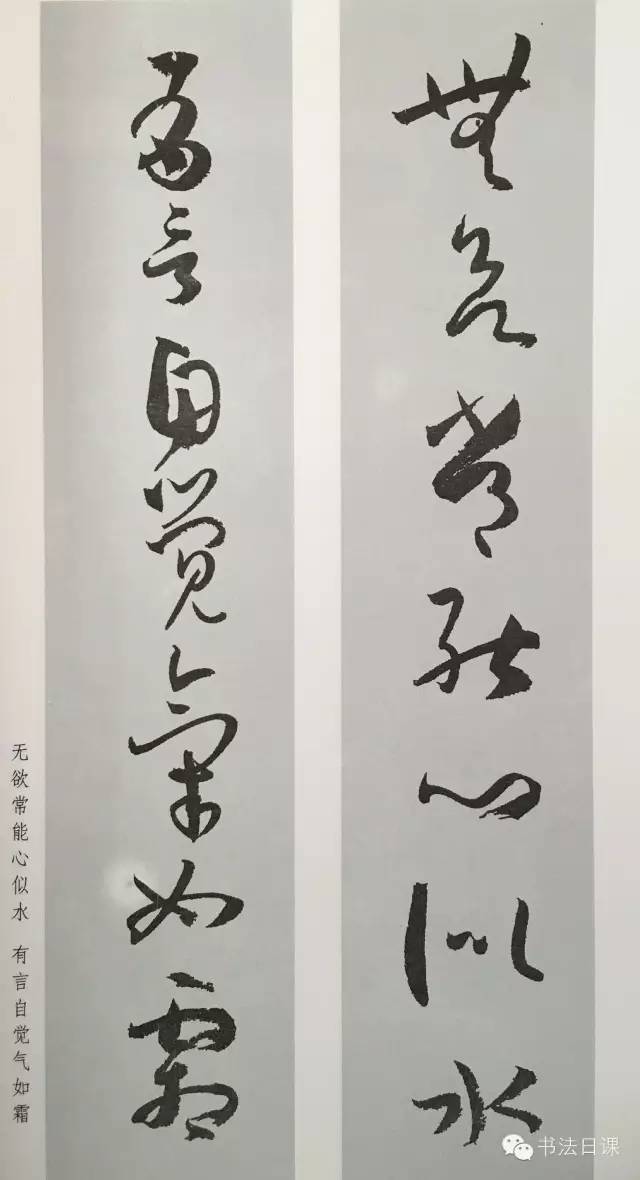 無欲常能心似水
有言自覺氣如霜
无欲常能心似水 有言自觉气如霜
书法日课